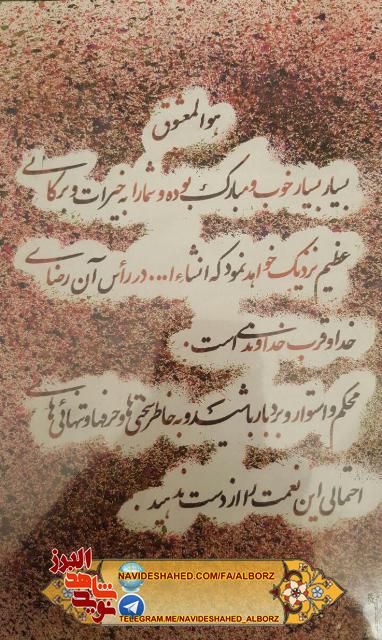 هوالمعشوق
بسیار بسیار خوب و مبارک بوده و شما را به خیرات و برکاتی
عظیم نزدیک خواهد نمود که انشاءا... در رأس آن رضای
خدا و قرب خداوندی است.
محکم و استوار و بردبار باشید و به خاطر سختی‌ها و حرفها و تنهائی‌های
احتمالی این نعمت را از دست ندهید.
نوید شاهد البرز
NAVIDESHAHED.COM/FA/ALBORZ
TELEGRAM.ME/NAVIDESHAHED_ALBORZ